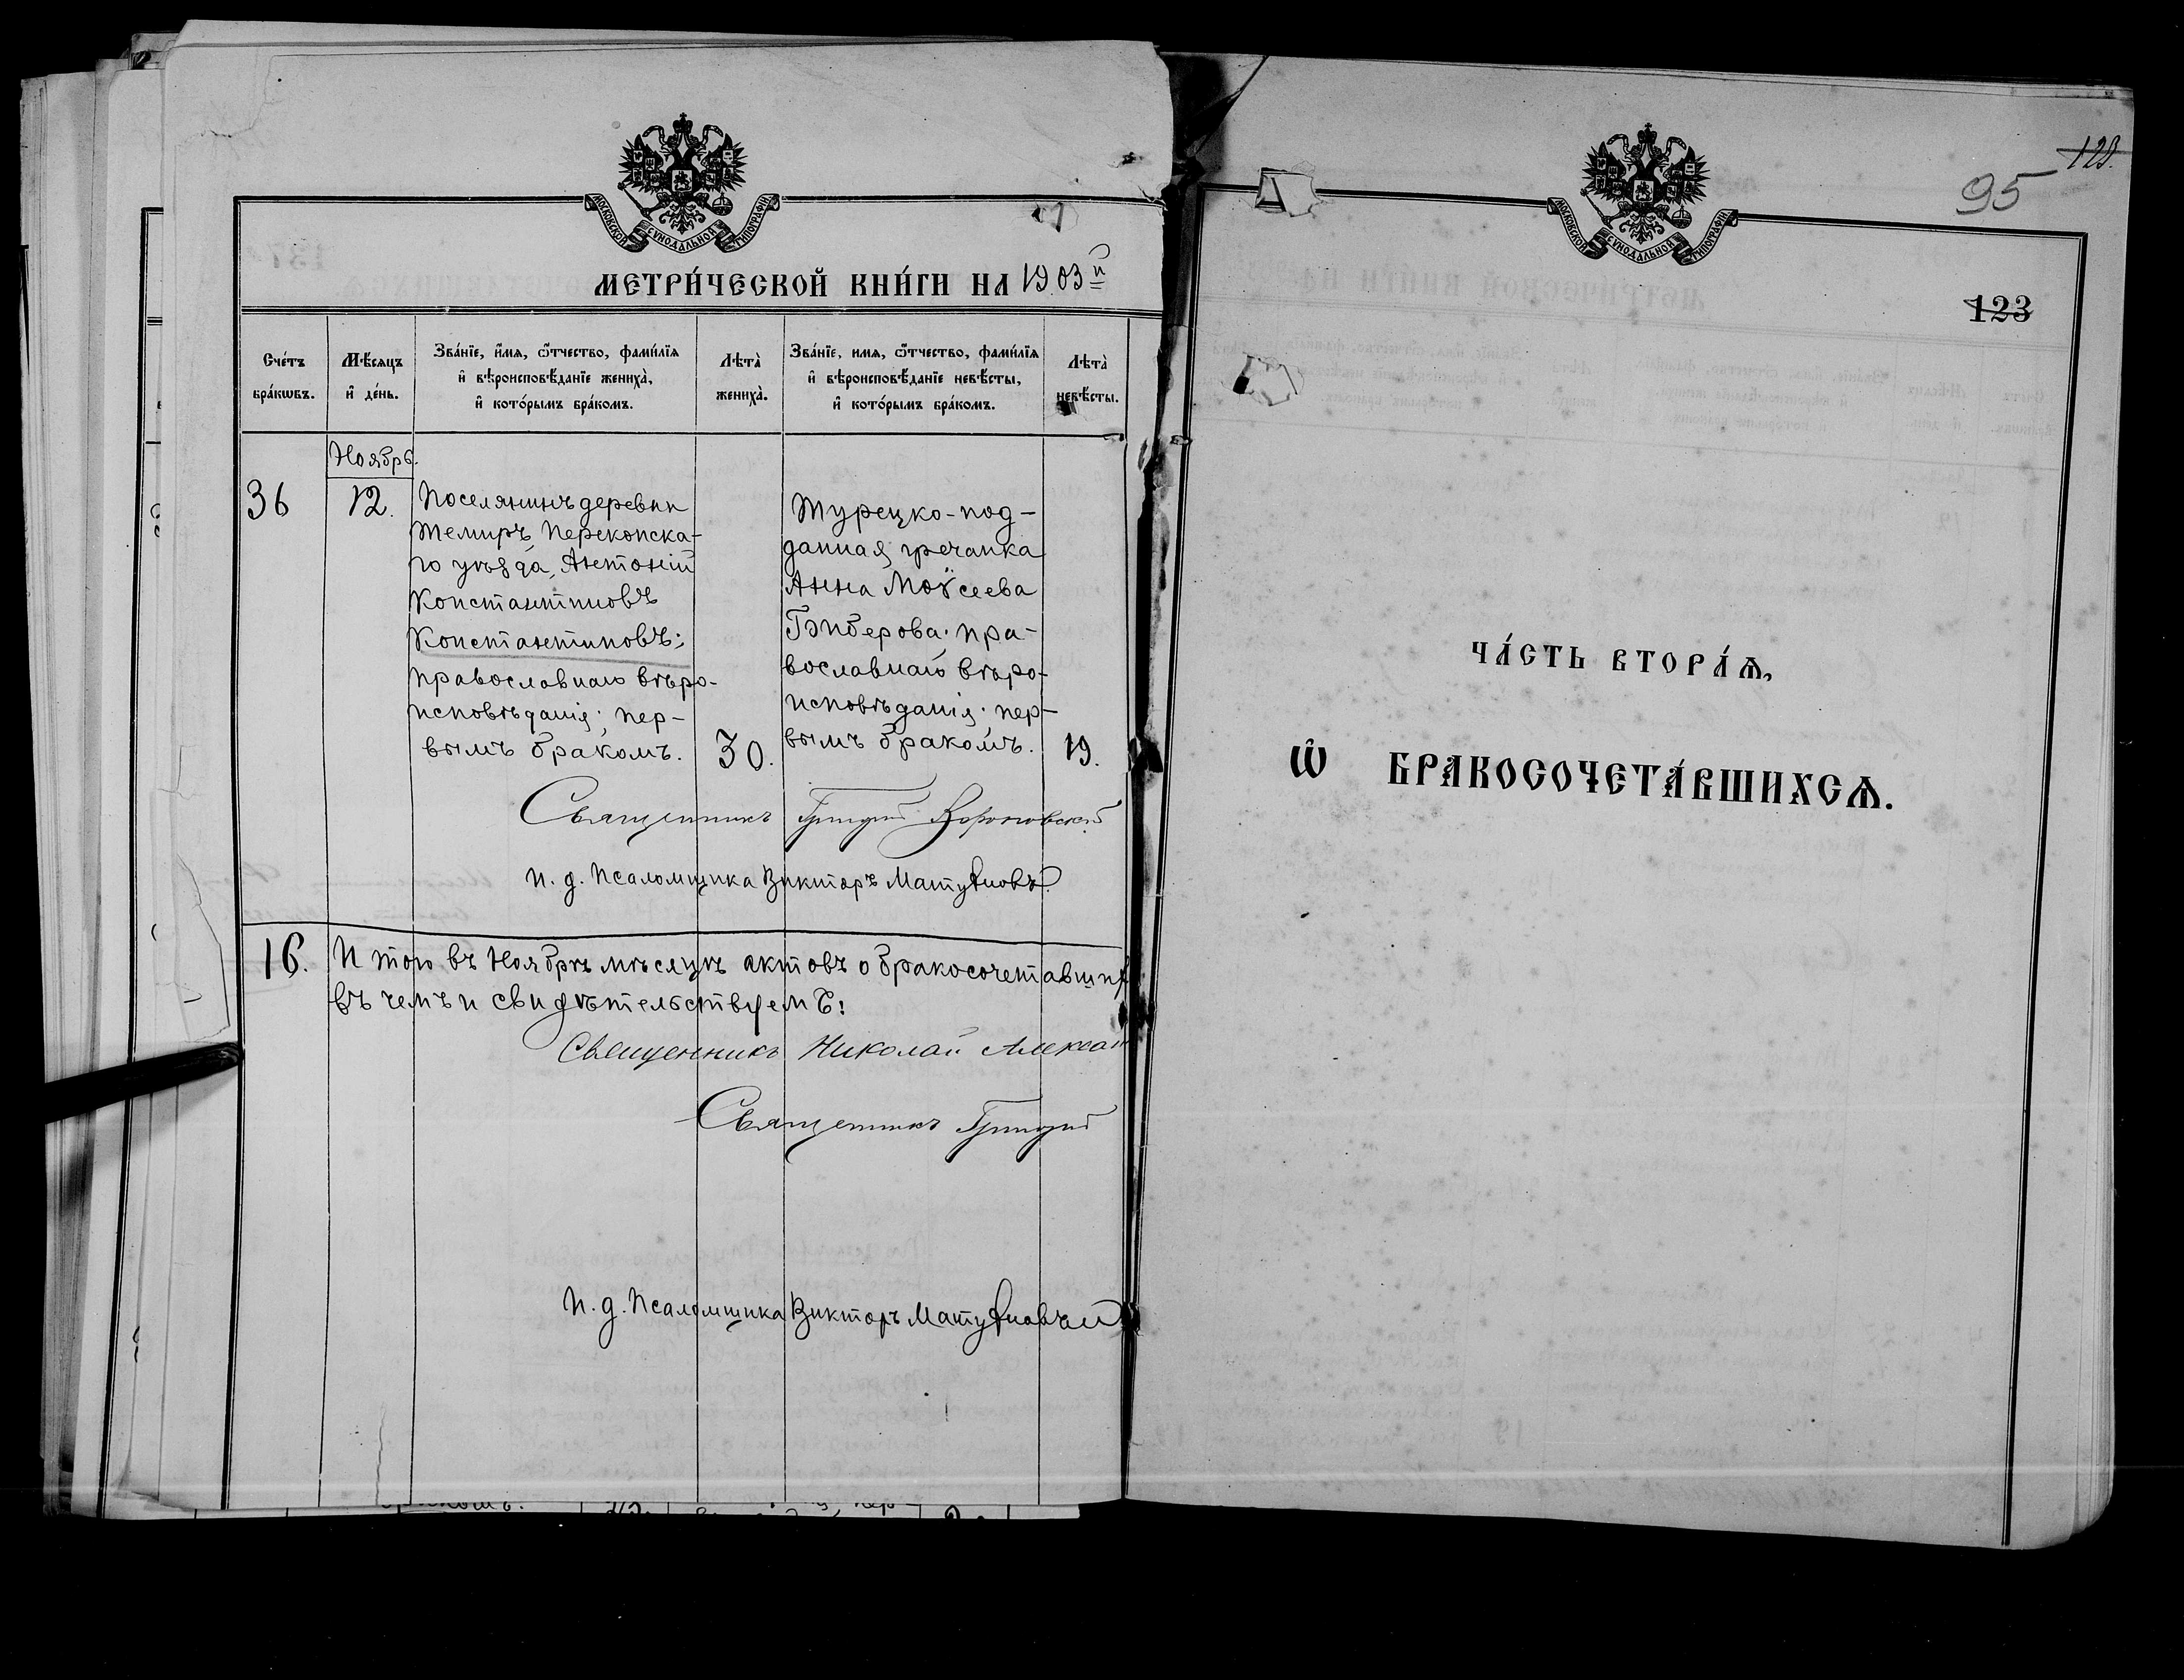 МОСКОВСКОЙ СѴНОДАЛЬНОЙ ТИПОГРАФІИ
МЕТРИ́ЧЕСКОЙ КНИ́ГИ НА 1903й
Сче́тъ бра́кωвъ.
Мѣ́сяцъ и҆ де́нь.
Зва́нїе, и҆́мѧ, ѻ҆́тчество, фами́лїѧ
и҆ вѣроисповѣ́данїе жениха̀,
и҆ кото́рымъ бра́комъ.
Лѣта̀ жениха̀.
Зва́нїе, имѧ, ѻ҆́тчество, фами́лїѧ
и҆ вѣроисповѣ́данїе невѣ́сты,
и҆ кото́рымъ бра́комъ.
Лѣта̀ невѣ́сты.
Ноябрь.
36
12.
Поселянинъ деревни
Темиръ, Перекопска-
го уѣзда, Антоній
Константиновъ
Константиновъ;
православнаго вѣро-
исповѣданія; пер-
вымъ бракомъ.
30.
Турецко-под-
данная гречанка
Анна Моѵсеева
православнаго вѣро-
исповѣданія; пер-
вымъ бракомъ.
19.
Священникъ Григорій
и. д. Псаломщика Викторъ
16.
Итого въ Ноябрѣ мѣсяцѣ актовъ о бракосочетавших
въ чемъ и свидѣтельствуемъ:
Священникъ Николай
Священникъ Григорій
И. д. Псаломщика Викторъ
МОСКОВСКОЙ СѴНОДАЛЬНОЙ ТИПОГРАФІИ
95
123
ЧА́СТЬ ВТОРА́Ѧ,
Ѡ҆ БРАКОСОЧЕТА́ВШИХСѦ.